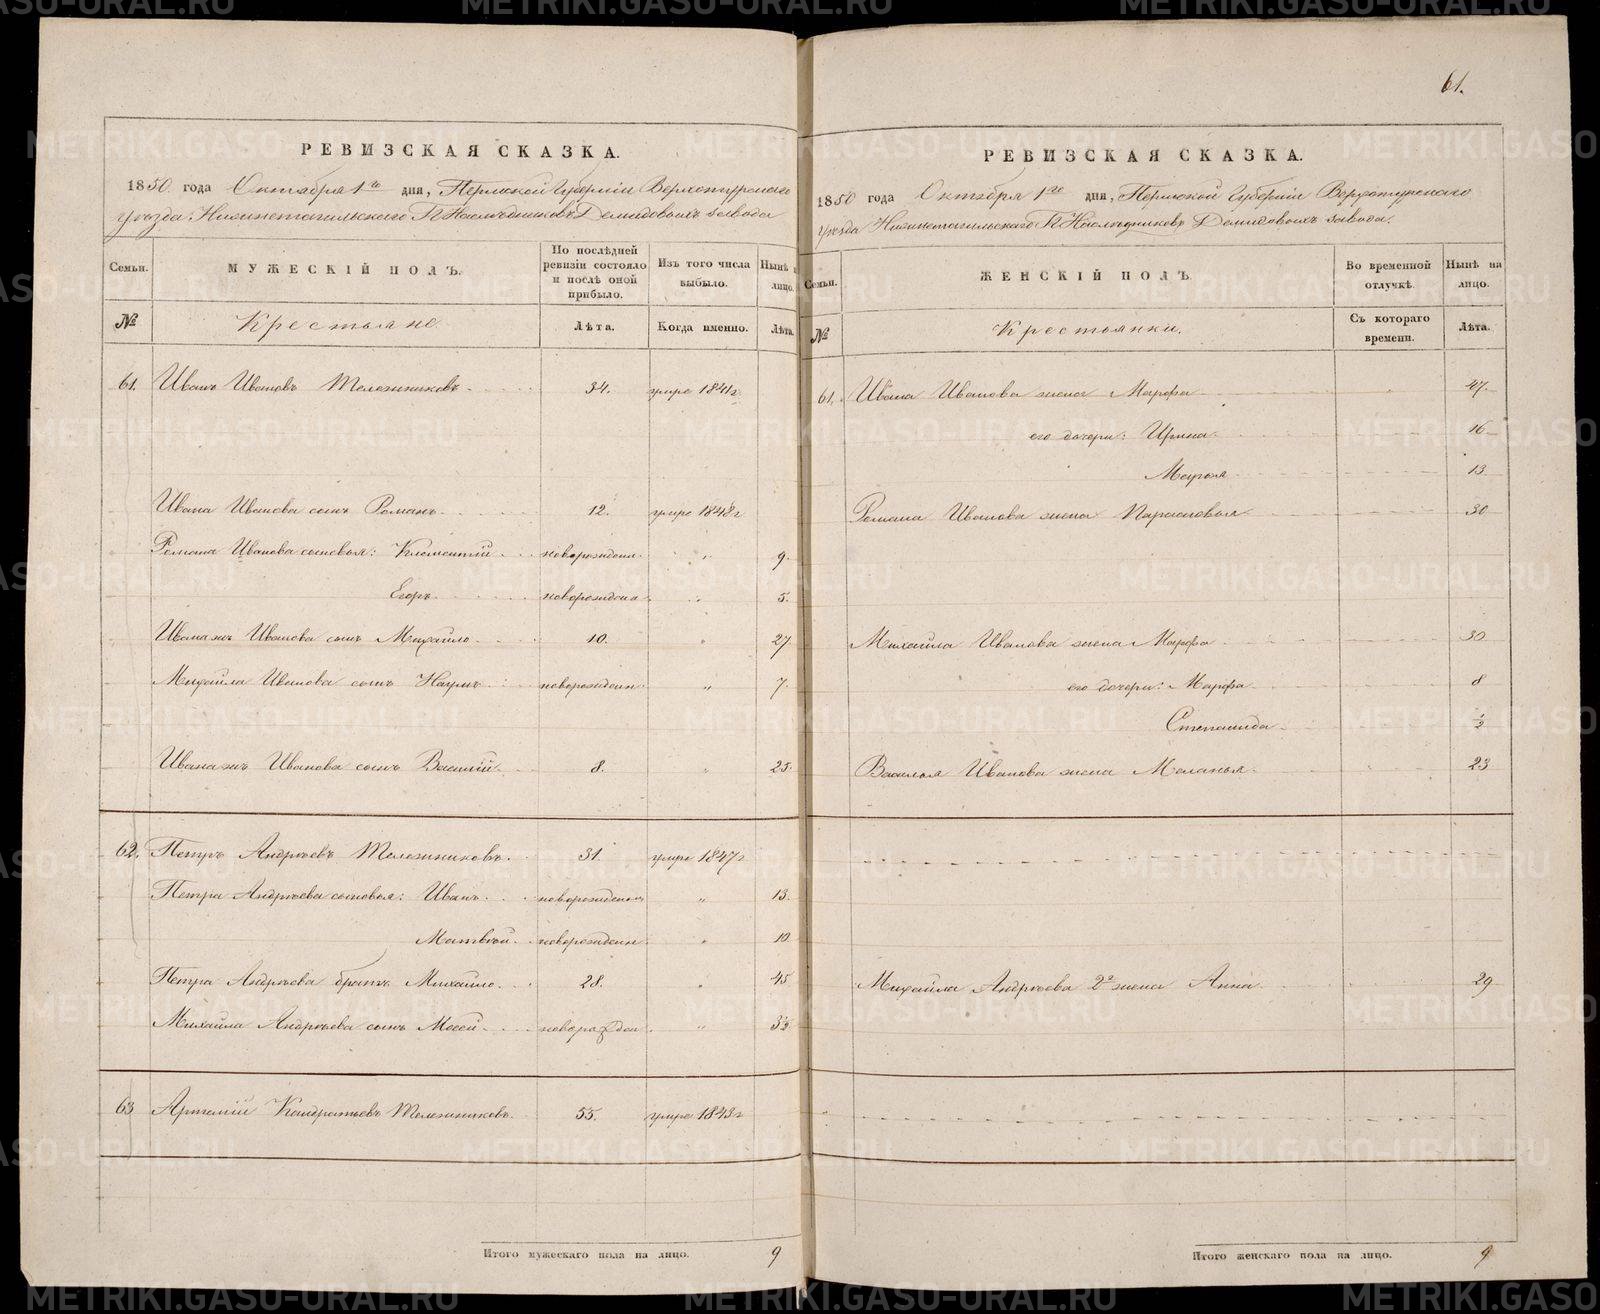 61.
РЕВИЗСКАЯ СКАЗКА.
1850 года Октября 1го дня, Пермской Губернии Верхотурского
уезда Нижнетагильского Наследников Демидовых завода
Семьи.
МУЖЕСКІЙ ПОЛЪ.
По послѣдней ревизіи состояло и послѣ оной прибыло.
Изъ того числа выбыло.
Нынѣ на лицо.
№
Крестьяне.
Лѣта.
Когда именно.
Лѣта.
61. Иванъ Ивановъ Тележниковъ 34. умре 1841г
Ивана Иванова сынъ Романъ 12. умре 1848г
Романа Иванова сыновья: Климентій новорожден. " 9.
Егоръ новорожден " 5.
Ивана жъ Иванова сынъ Михайло 10. " 27.
Михайла Иванова сынъ Наумъ новорожден. " 7.
Ивана жъ Иванова сынъ Василій 8. " 25.
62. Петръ Андреевъ Тележниковъ 31. умре 1847г
Петра Андреева сыновья: Иванъ новорожденъ " 13.
Матвей новорожден " 10
Петра Андреева братъ Михайло 28. " 45
Михайла Андреева сынъ Мосей новорожден "
63 Артемій Кондратьевъ Тележниковъ 55. умре 1843г
Итого мужескаго пола на лицо. 9
РЕВИЗСКАЯ СКАЗКА.
1850 года Октября 1го дня, Пермской Губернии Верхотурского
уезда Нижнетагильского Наследниковъ Демидовыхъ завода.
Семьи.
ЖЕНСКІЙ ПОЛЪ.
Во временной отлучкѣ.
Нынѣ на лицо.
№
Крестьянки.
Съ котораго времени.
Лѣта.
61. Ивана Иванова жена Марфа 47.
его дочери: Ирина 16
Марья 13
Романа Иванова жена Парасковья 30
Михайла Иванова жена Марфа 30
его дочери: Марфа 8
Степанида 1/2
Василья Иванова жена Меланья 23
Михайла Андреева 2я жена Анна 29
Итого женскаго пола на лицо. 9
METRIKI.GASO-URAL.RU